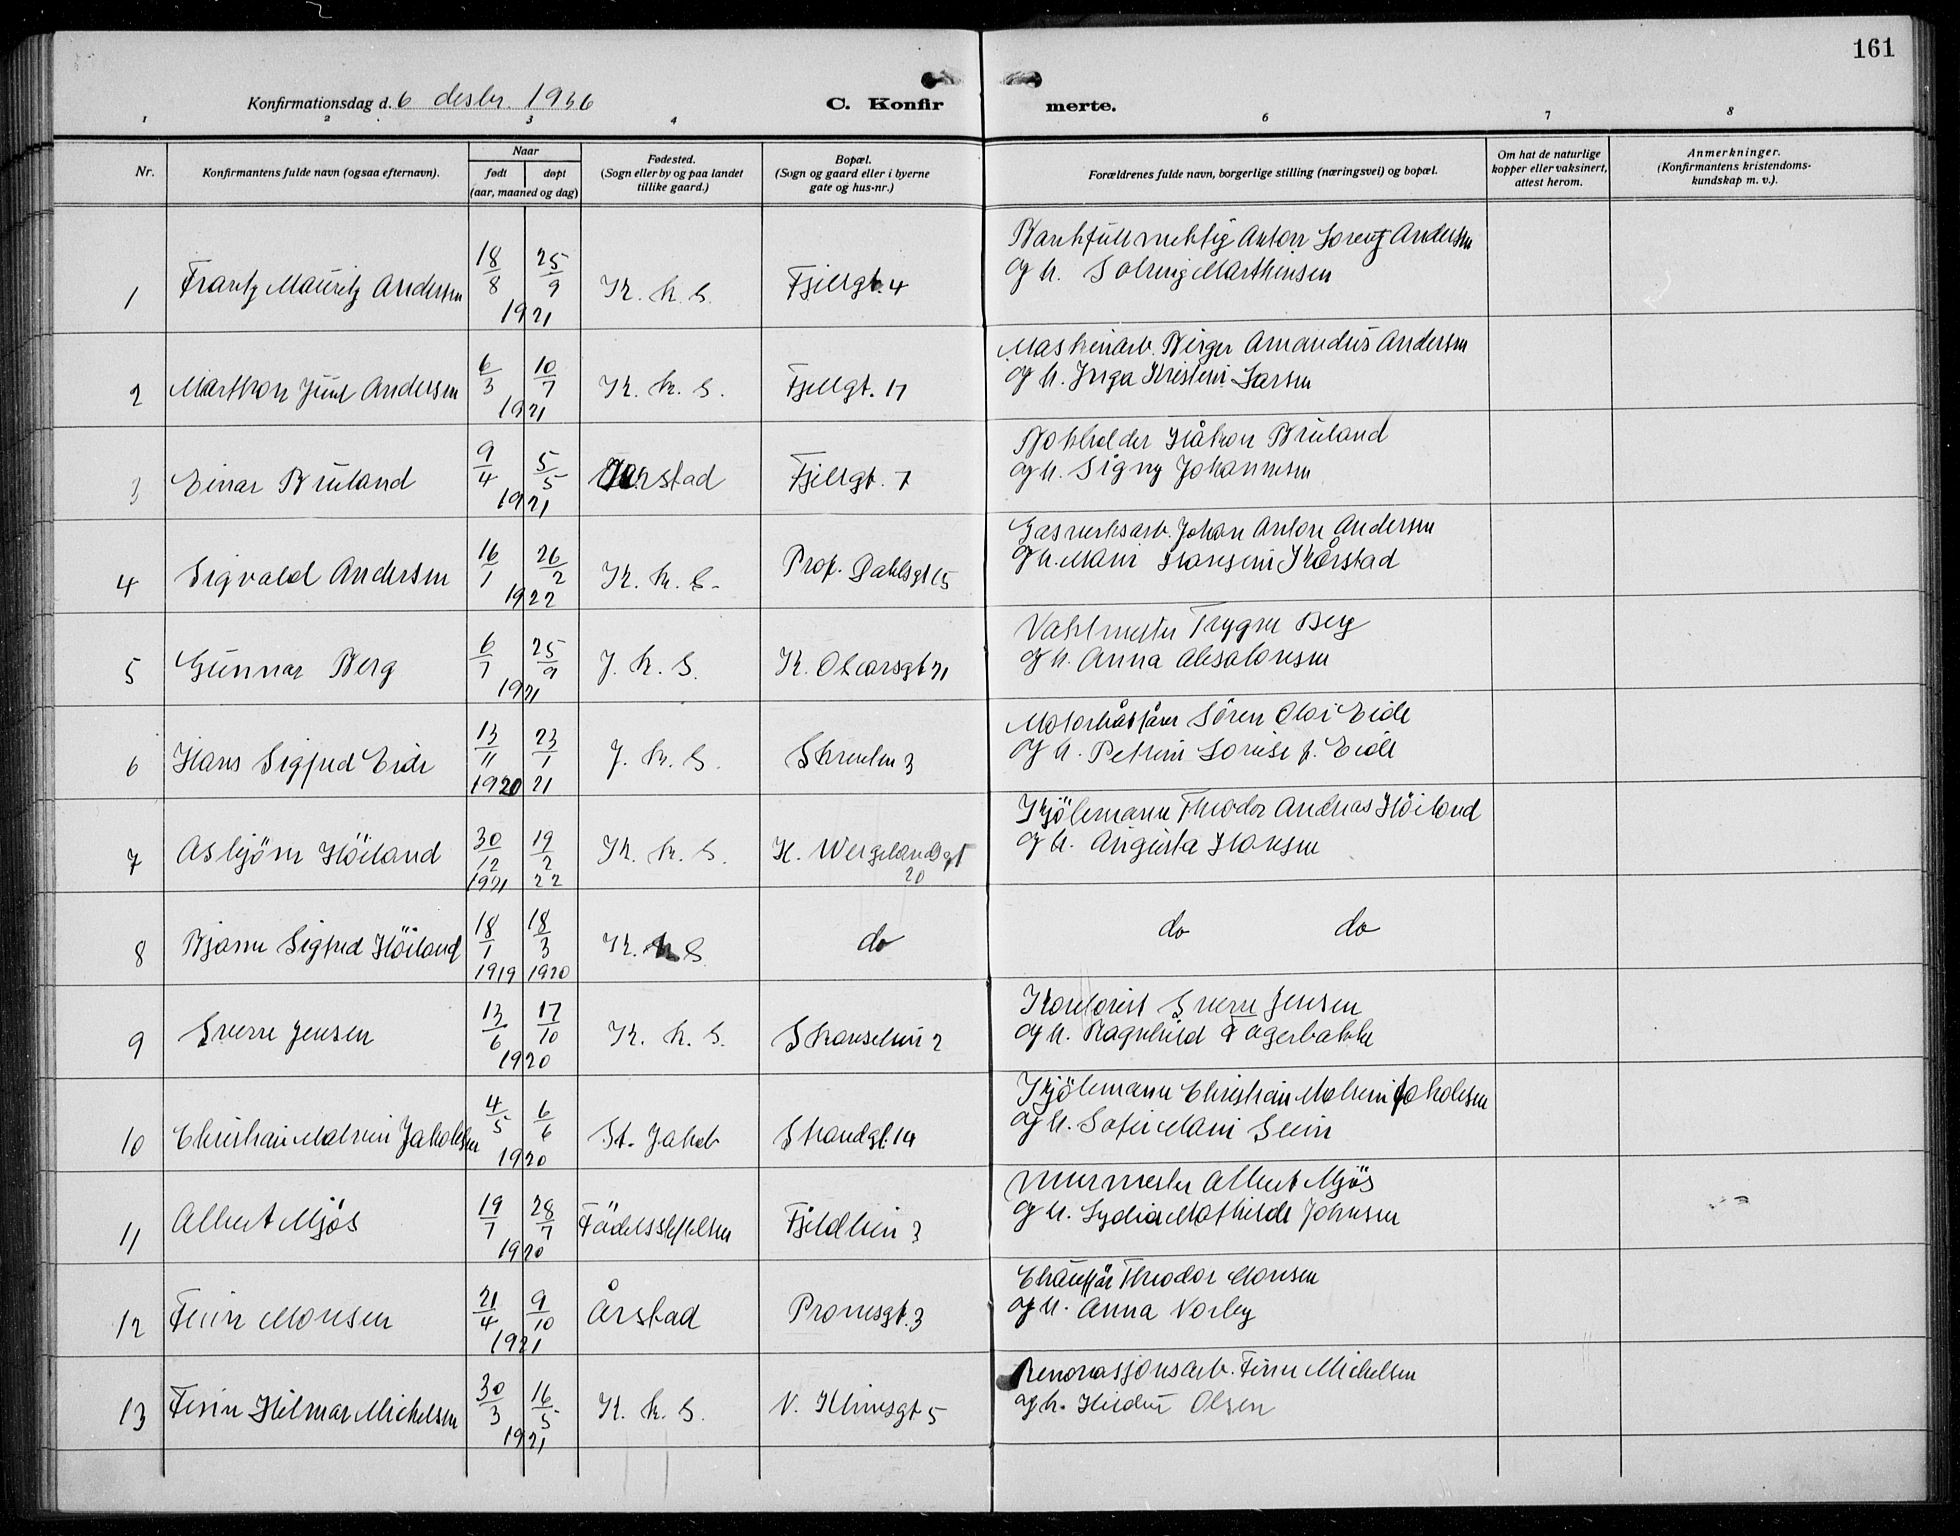 161
Konfirmationsdag d. 6 desbr. 1936
C. Konfirmerte.
1 2 3 4 6 7 8
Nr.
Konfirmantens fulde navn (ogsaa efternavn).
Naar
født døpt
(aar, maaned og dag)
Fødested.
(Sogn eller by og paa landet
tillike gaard.)
Bopæl.
(Sogn og gaard eller i byerne
gate og hus-nr.)
Forældrenes fulde navn, borgerlige stilling (næringsvei) og bopæl.
Om hat de naturlige
kopper eller vaksinert,
attest herom.
Anmerkninger.
(Konfirmantens kristendoms-
kundskap m. v.).
1 Frantz Mauritz Andersen 18/8 25/9 1921 K. k. S. Fjellgt. 4
Bankfullmektig Anton Lorentz Andersen
og h. Solveig Marthinsen
2 Marthon Juul Andersen 6/3 10/7 1921 K. k. S. Fjellgt. 17
Maskinarb. Birger Amandus Andersen
og h. Inga Kristine Larsen
3 Einar Bruland 9/4 5/5 1921 Årstad Fjellgt. 7
Bokholder Håkon Bruland
og h. Signy Johannesen
4 Sigvald Andersen 16/1 26/2 1922 K. k. S. Prof. Dahlsgt 15
Gasverksarb. Johan Anton Andersen
og h. Marie Hansine Kårstad
5 Gunnar Berg 6/7 25/9 1921 J. k. S. K. Oscarsgt 21
Vaktmester Trygve Berg
og h. Anna Absalonsen
6 Hans Sigfred Eide 13/11 1920 23/1 21 J. k. S. Skreulen 3
Motorbåtfører Sören Olai Eide
og h. Petrine Lovise f. Eide
7 Asbjörn Höiland 30/12 1921 19/2 22 K. k. S. H. Wergelandsgt 20
Kjölemann Theodor Andreas Höiland
og h. Augusta Hansen
8 Bjarne Sigfred Höiland 18/1 1919 18/3 1920 K. k S. do
do do
9 Sverre Jensen 13/6 17/10 1920 K. k. S. Skanselien 2
Konditorist Sverre Jensen
og h. Ragnhild Fagerbakke
10 Christian Malvin Jakobsen 4/5 6/6 1920 St. Jakob Strandgt. 19
Kjölemann Christian Malvin Jakobsen
og h. Sofie Marie Stein
11 Albert Mjös 19/7 28/7 1920 Födelsstiftelsen Fjeldlien 3
Murmester Albert Mjös
og h. Lydia Mathilde Johnsen
12 Finn Monsen 21/4 9/10 1921 Årstad Promsgt. 3
Chaufför Theodor Monsen
og h. Anna Norby
13 Finn Hilmar Michelsen 30/3 16/5 1921 K. k. S. N. Klinesgt 5
Renovasjonsarb. Finn Michelsen
og h. Hildur Olsen